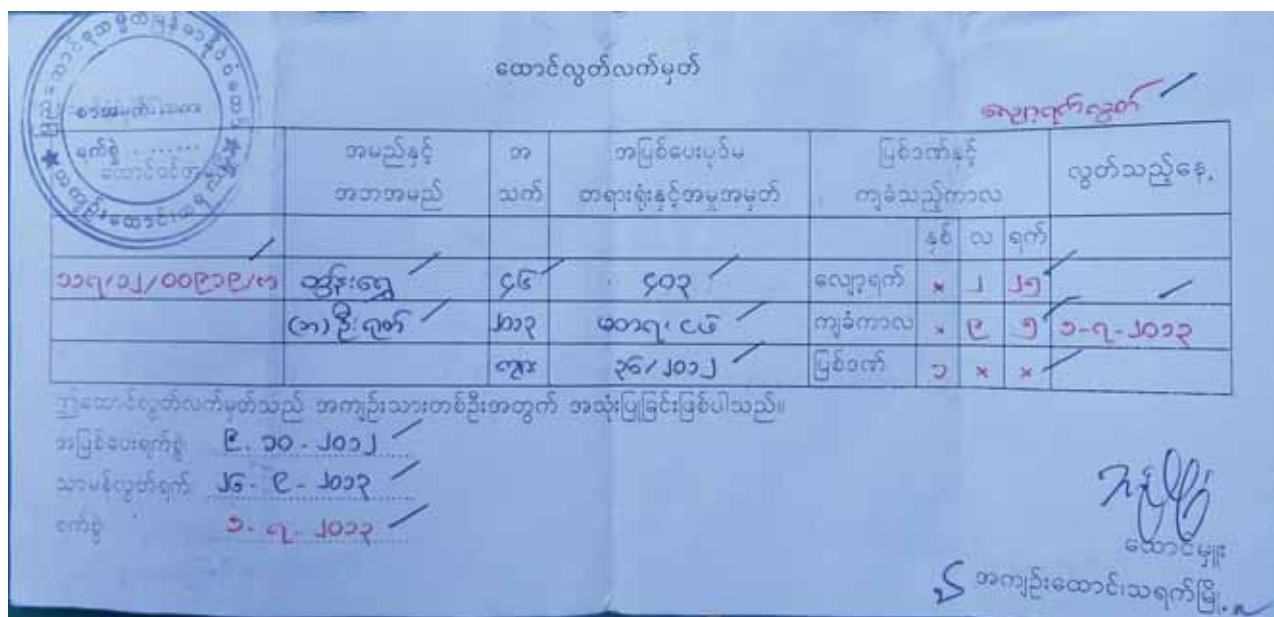 ထောင်လွတ်လက်မှတ်
လျော့ရက်လွတ်
စာအမှတ်၊
ရက်စွဲ ........
အမည်နှင့် အဘအမည်
အသက်
အပြစ်ပေးပုဒ်မ တရားရုံးနှင့်အမှုအမှတ်
ပြစ်ဒဏ်နှင့် ကျခံသည့်ကာလ
လွတ်သည့်နေ့
နှစ် လ ရက်
၁၁၇/၁၂/၀၀၉၁၉/က ထွန်းရွှေ ၄၆ ၄၀၃ လျော့ရက် × ၂ ၂၅
(ဘ) ဦး ၂၀၁၃ ကျခံကာလ × ၉ ၅ ၁-၇-၂၀၁၃
ကျား ၃၆/၂၀၁၂ ပြစ်ဒဏ် ၁ × ×
ဤထောင်လွတ်လက်မှတ်သည် အကျဉ်းသားတစ်ဦးအတွက် အသုံးပြုခြင်းဖြစ်ပါသည်။
အပြစ်ပေးရက်စွဲ ၉.၁၀-၂၀၁၂
သာမန်လွတ်ရက် ၂၆-၉-၂၀၁၃
ရက်စွဲ ၁-၇-၂၀၁၃
ထောင်မှူး
အကျဉ်းထောင်၊သရက်မြို့.